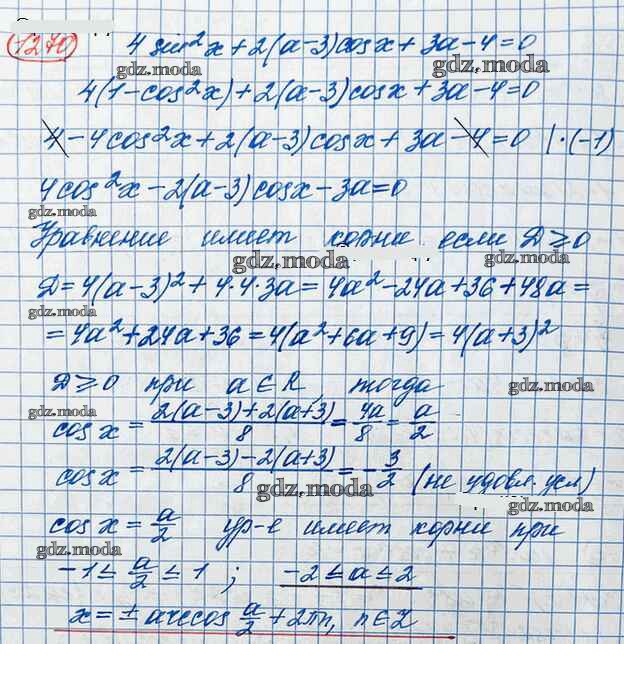 1270
4 sin²x + 2(a-3)cosx + 3a - 4 = 0
gdz.moda
gdz.moda
4(1-cos²x) + 2(a-3)cosx + 3a - 4 = 0
4 - 4cos²x + 2(a-3)cosx + 3a - 4 = 0 |·(-1)
4cos²x - 2(a-3)cosx - 3a = 0
gdz.moda
Уравнение имеет корни если D ≥ 0
gdz.moda
gdz.moda
D = 4(a-3)² + 4·4·3a = 4a² - 24a + 36 + 48a =
gdz.moda
= 4a² + 24a + 36 = 4(a² + 6a + 9) = 4(a+3)²
D ≥ 0 при a ∈ R, тогда
gdz.moda
gdz.moda
cos x = (2(a-3) + 2(a+3))/8 = 4a/8 = a/2
cos x = (2(a-3) - 2(a+3))/8 = -3/2 (не удовл. усл)
gdz.moda
cos x = a/2 ур-е имеет корни при
gdz.moda
gdz.moda
-1 ≤ a/2 ≤ 1 ; -2 ≤ a ≤ 2
x = ± arccos a/2 + 2πn, n ∈ Z